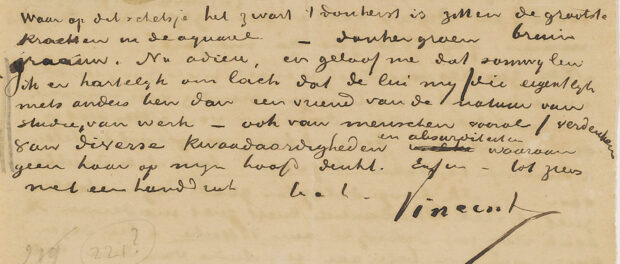 Waar op dit schetsje het zwart 't donkerst is zitten de grootste
krachten in de aquarel – donkergroen bruin
graauw. Nu adieu, en geloof me dat somwijlen
ik er hartelyk om lach dat de lui my /die eigentlyk
niets anders ben dan een vriend van de natuur van
studie, van werk – ook van menschen vooral/ verdenken
van diverse kwaadaardigheden en absurditeiten waaraan
geen haar op myn hoofd denkt. Enfin – tot ziens
met een handdruk t. à t.
Vincent
221?